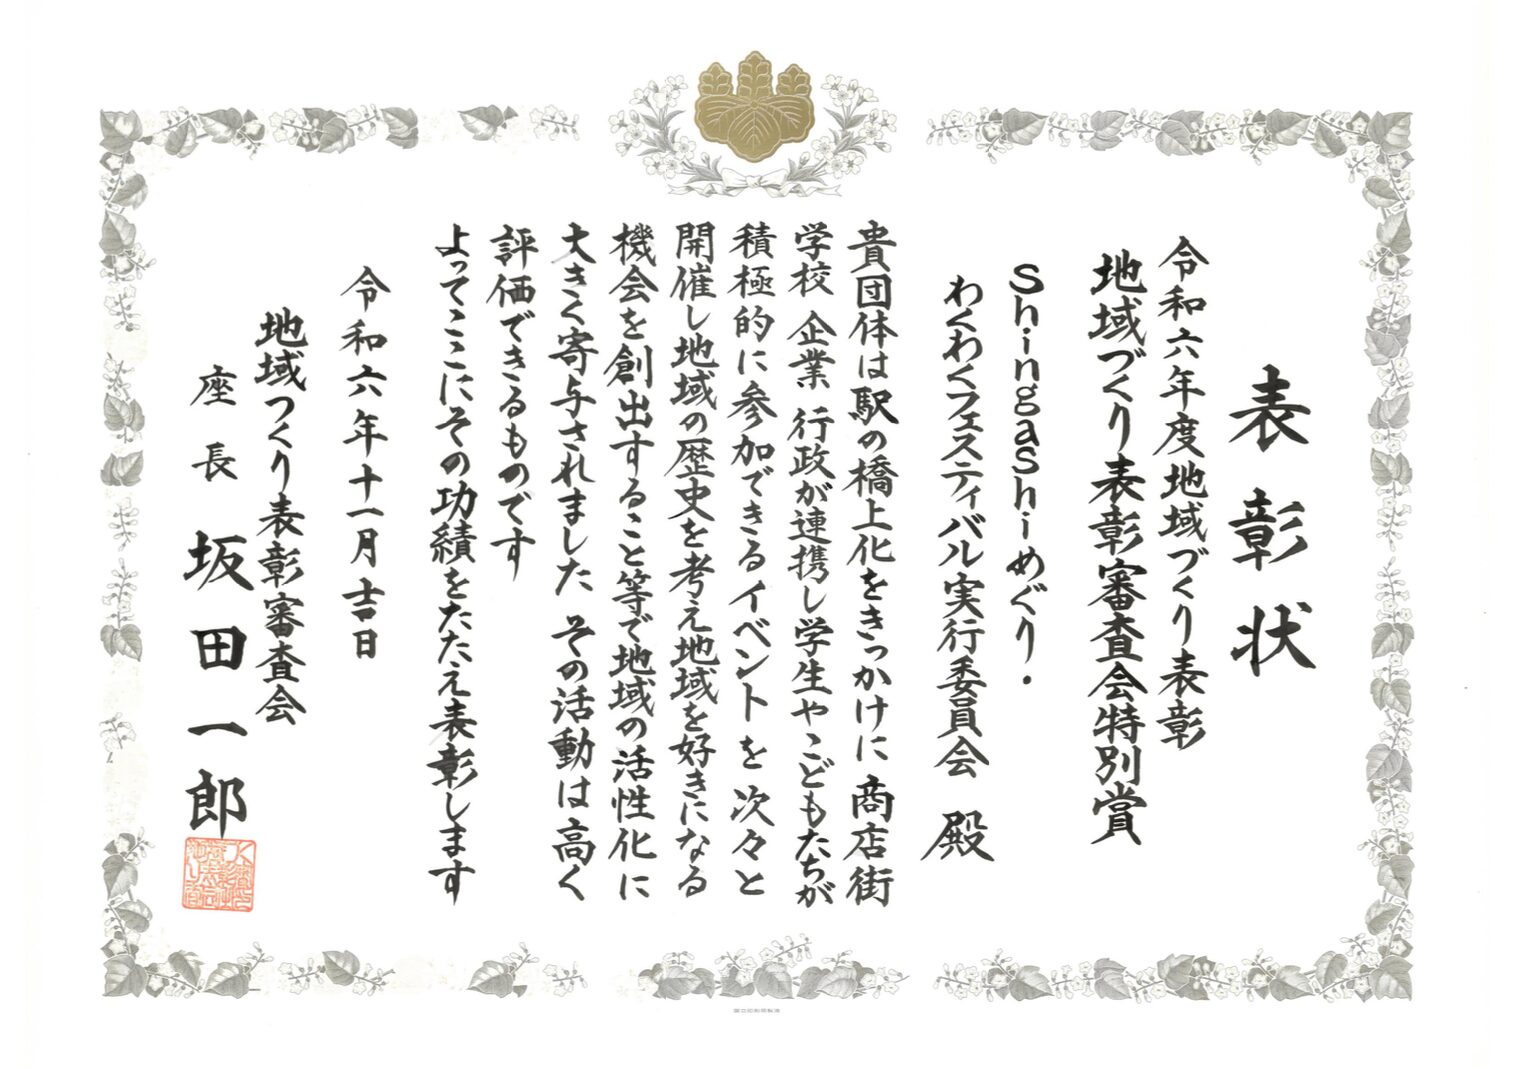 表彰状
令和六年度地域づくり表彰
地域づくり表彰審査会特別賞
Shingashiめぐり・
わくわくフェスティバル実行委員会 殿
貴団体は駅の橋上化をきっかけに 商店街
学校 企業 行政が連携し学生やこどもたちが
積極的に参加できるイベントを次々と
開催し地域の歴史を考え地域を好きになる
機会を創出すること等で地域の活性化に
大きく寄与されました その活動は高く
評価できるものです
よってここにその功績をたたえ表彰します
令和六年十一月吉日
地域づくり表彰審査会
座長 坂田一郎
国立印刷局製造